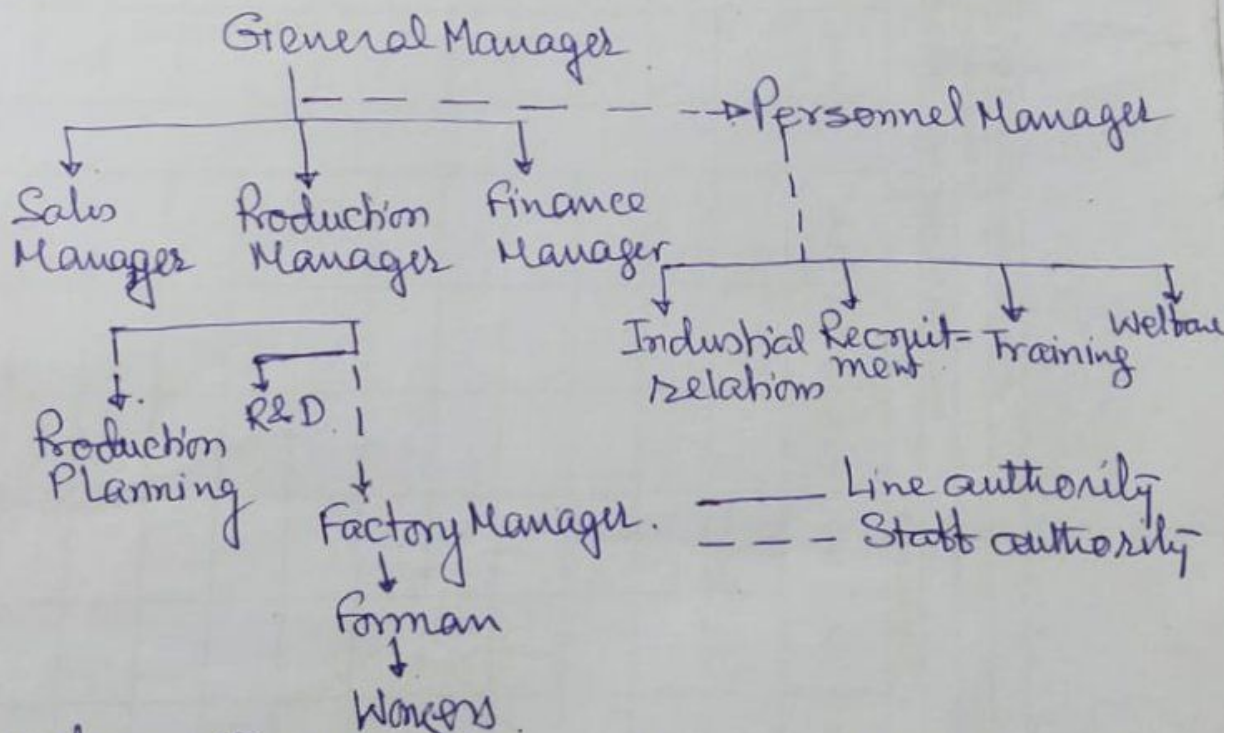 General Manager
Personnel Manager
Sales Manager
Production Manager
Finance Manager
Industrial relations
Recruit-
ment
Training
Welfare
Production
Planning
R&D.
Factory Manager.
Forman
Workers.
Line authority
Staff authority